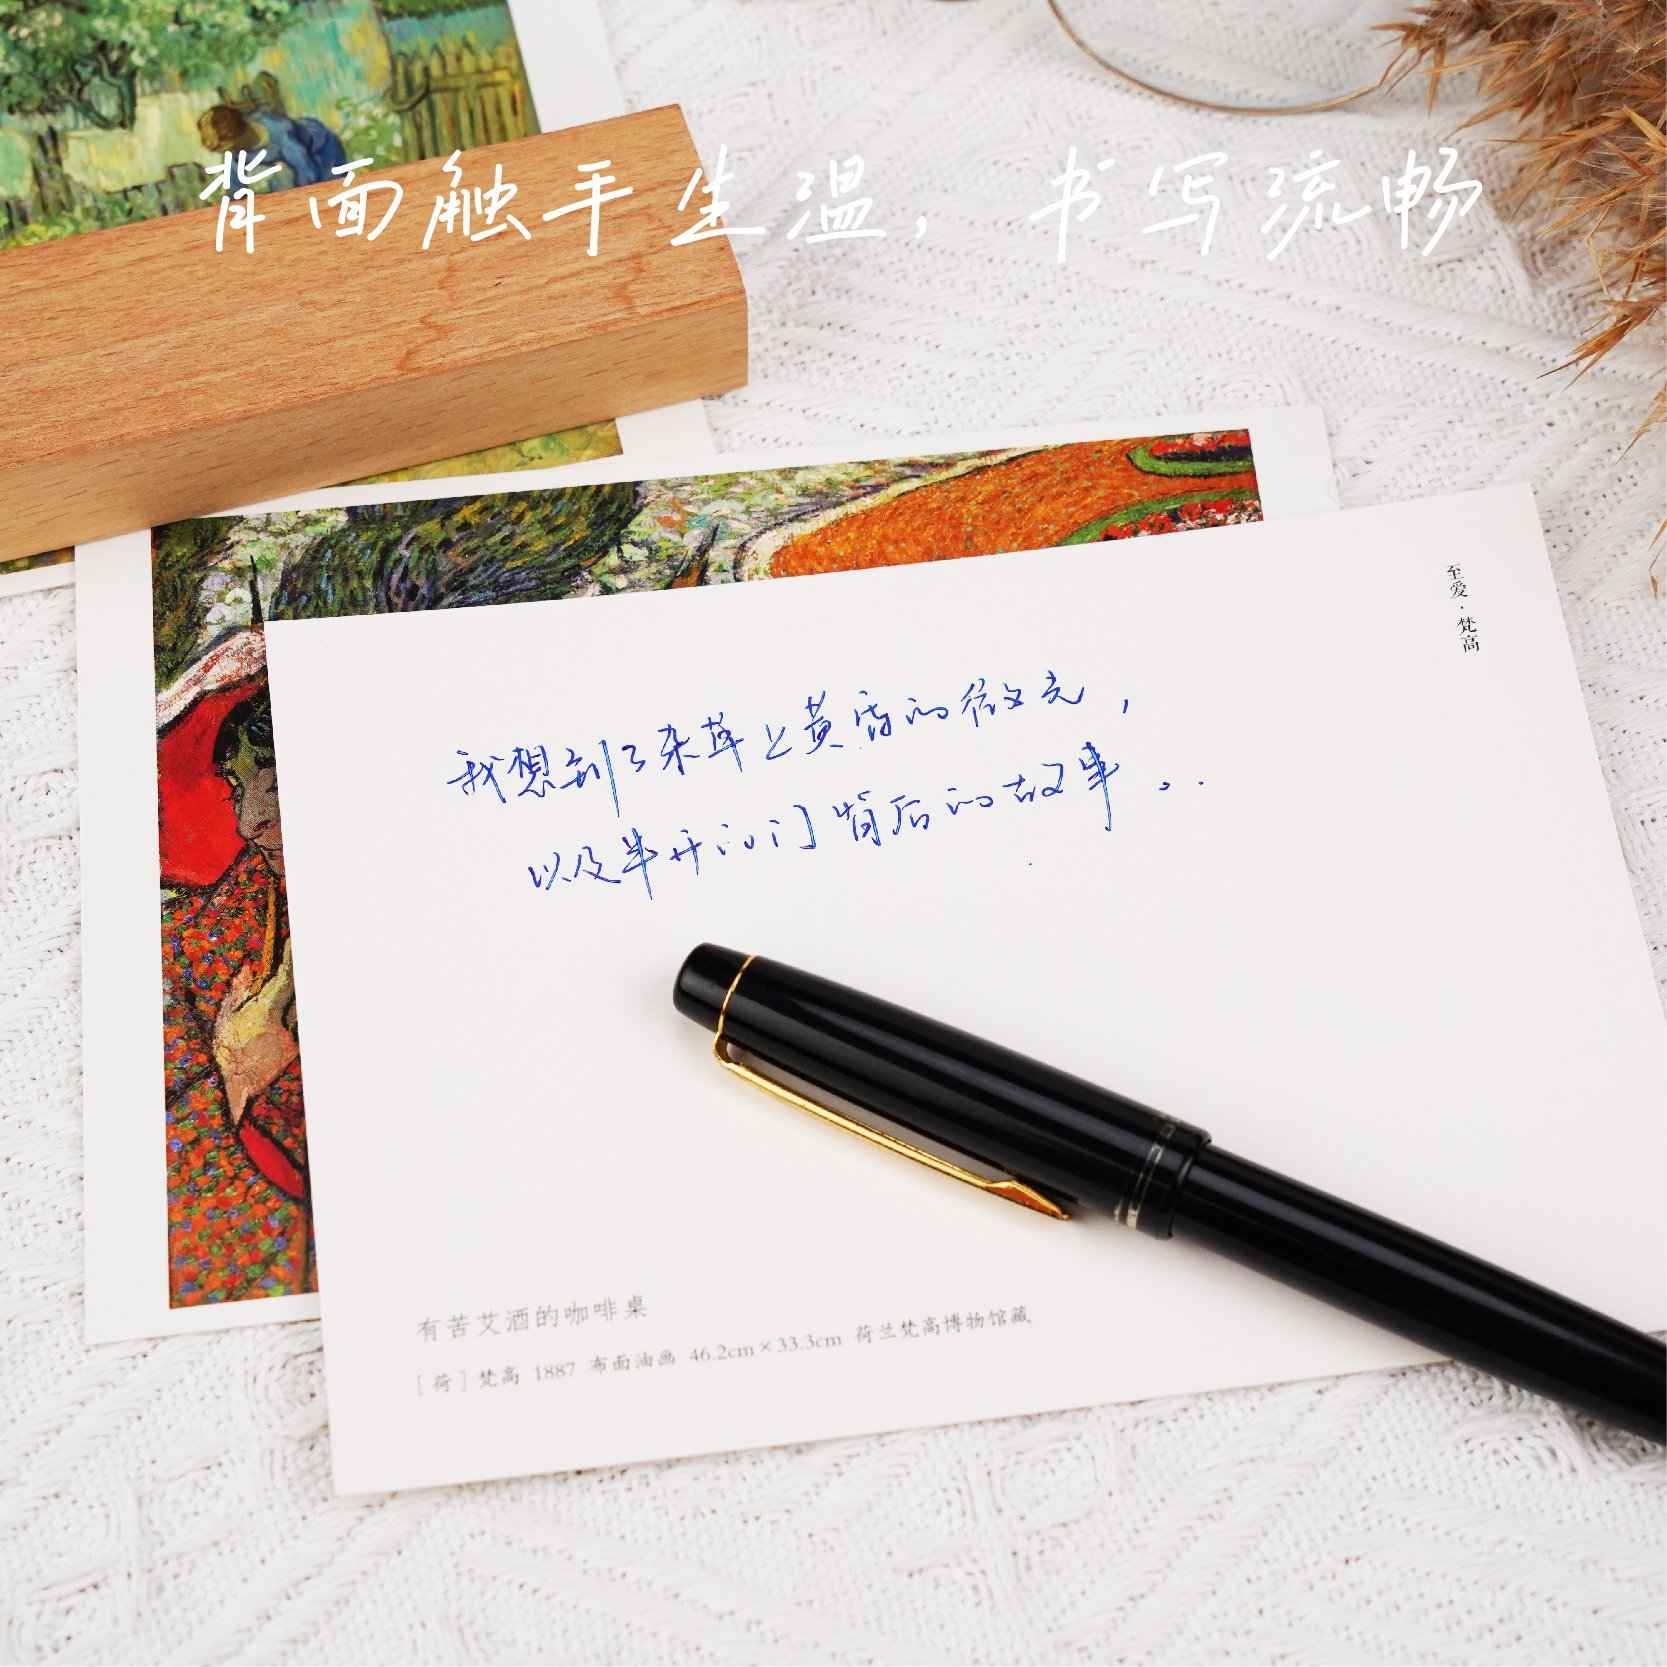 背面触手生温，书写流畅
至爱·梵高
我想到了杂草上黄昏的微光，
以及半开的门背后的故事。..
有苦艾酒的咖啡桌
[荷] 梵高 1887 布面油画 46.2cm×33.3cm 荷兰梵高博物馆藏